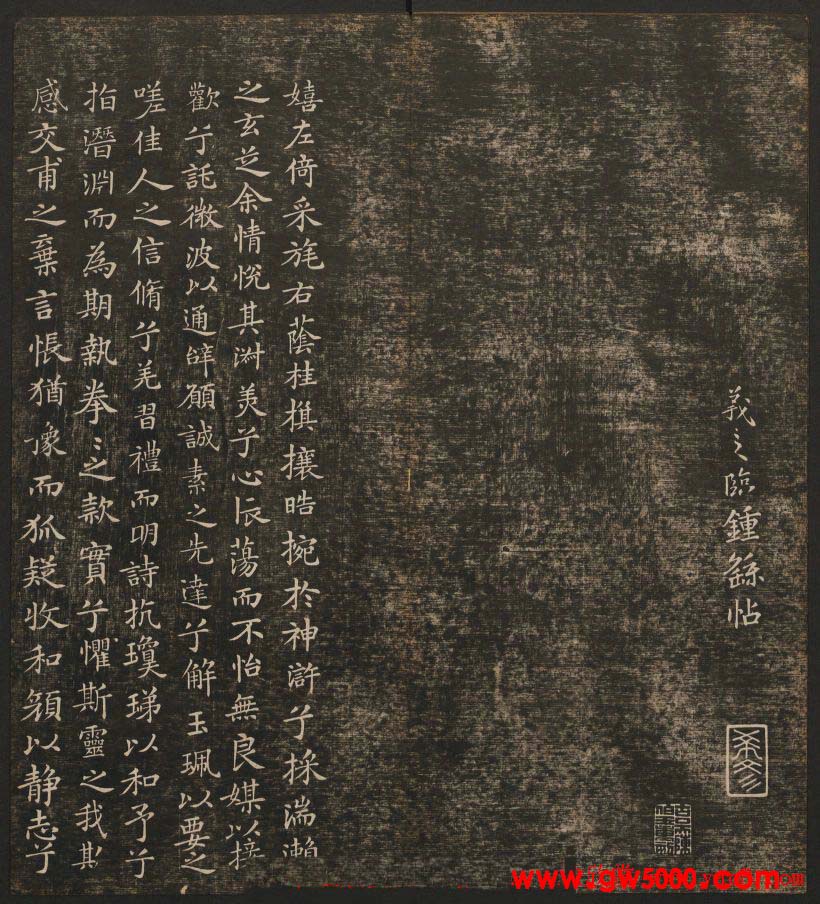 羲之臨鍾繇帖
嬉左倚采旄右蔭桂棋攘皓捥於神滸兮採湍瀨
之玄芝余情悅其淑美兮心振蕩而不怡無良媒以接
歡兮託微波以通辭願誠素之先達兮解玉珮以要之
嗟佳人之信脩兮羌習禮而明詩抗瓊珶以和予兮
指潛淵而為期執拳〻之款實兮懼斯靈之我欺
感交甫之棄言悵猶豫而狐疑收和顏以静志兮
www.zgw5000.com